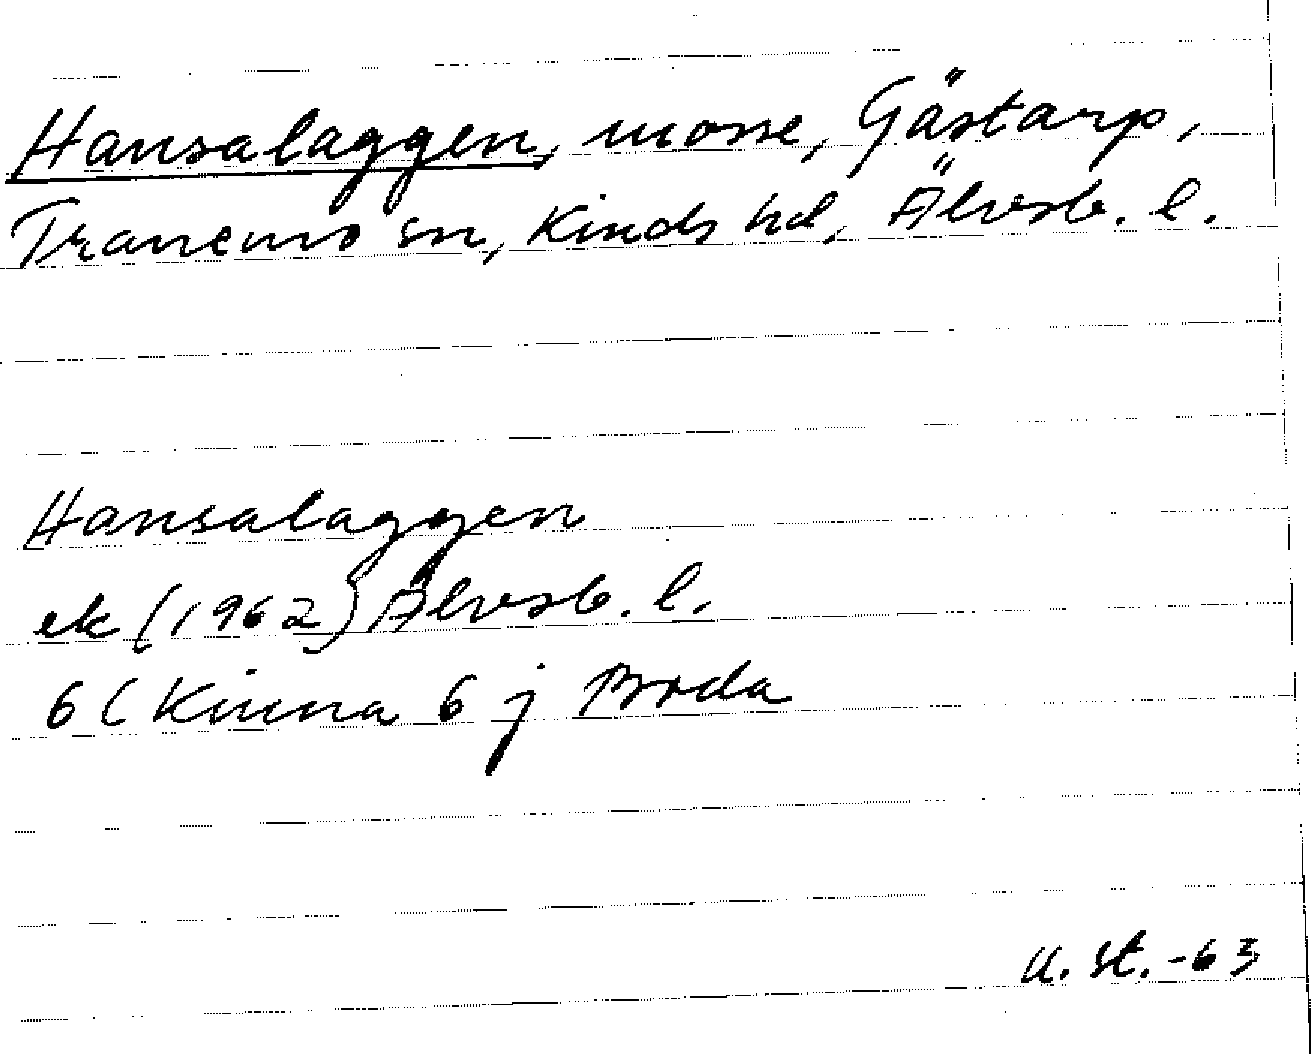 Hansalaggen, mosse, Gästarp,
Tranemo sn, Kinds hd, Älvsb. l.
Hansalaggen
ek (1962) Älvsb. l.
6 C Kinna 6 j Broda
U. St. -63